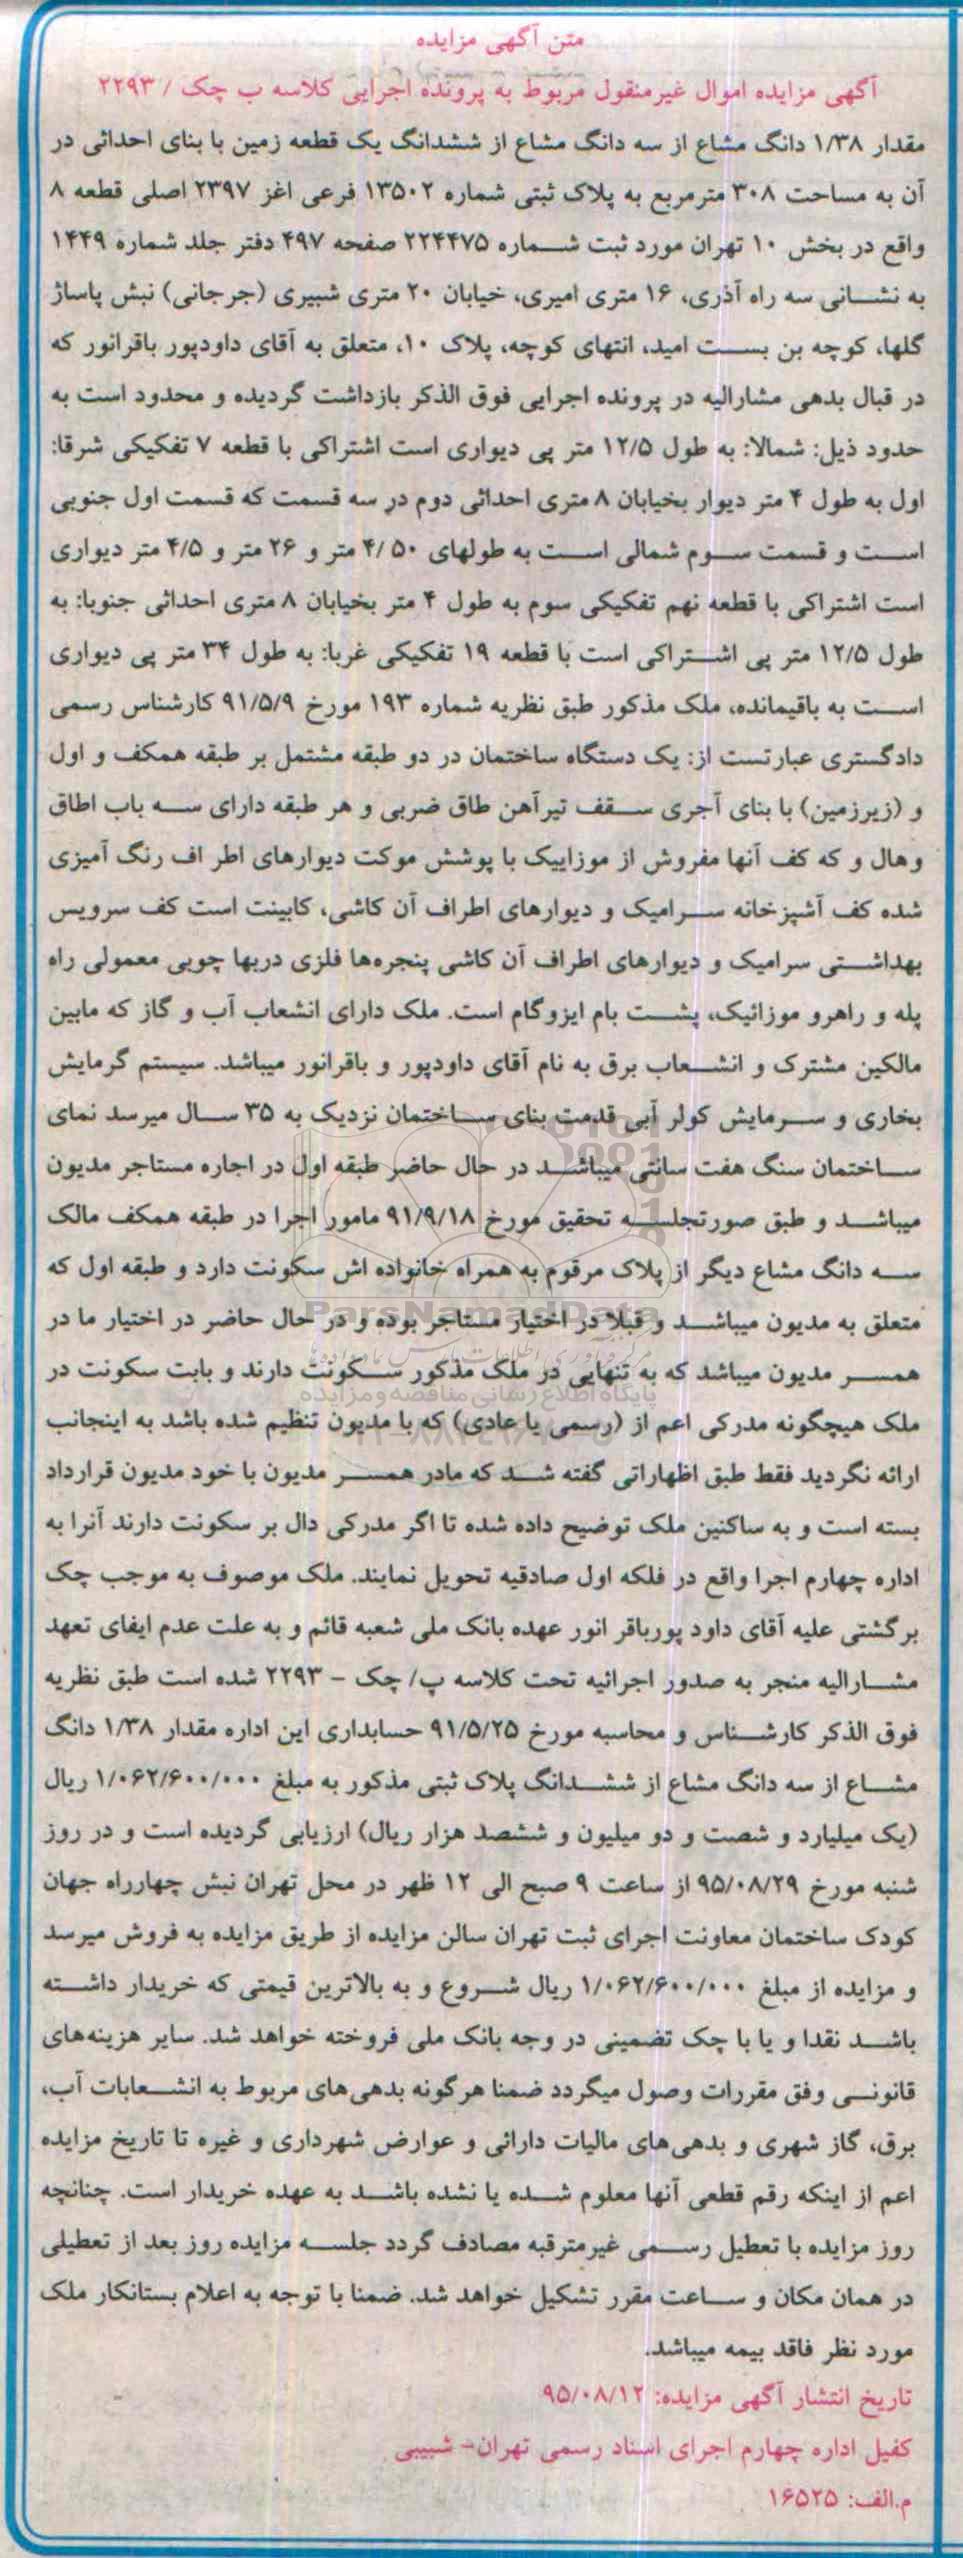 متن آگهی مزایده
آگهی مزایده اموال غیرمنقول مربوط به پرونده اجرایی کلاسه ب چک / ۲۲۹۳
مقدار ۱/۳۸ دانگ مشاع از سه دانگ مشاع از ششدانگ یک قطعه زمین با بنای احداثی در
آن به مساحت ۳۰۸ مترمربع به پلاک ثبتی شماره ۱۳۵۰۲ فرعی اغز ۲۳۹۷ اصلی قطعه ۸
واقع در بخش ۱۰ تهران مورد ثبت شماره ۲۲۴۴۷۵ صفحه ۴۹۷ دفتر جلد شماره ۱۴۴۹
به نشانی سه راه آذری، ۱۶ متری امیری، خیابان ۲۰ متری شبیری (جرجانی) نبش پاساژ
گلها، کوچه بن بست امید، انتهای کوچه، پلاک ۱۰، متعلق به آقای داودپور باقرانور که
در قبال بدهی مشارالیه در پرونده اجرایی فوق الذکر بازداشت گردیده و محدود است به
حدود ذیل: شمالا: به طول ۱۲/۵ متر پی دیواری است اشتراکی با قطعه ۷ تفکیکی شرقا:
اول به طول ۴ متر دیوار بخیابان ۸ متری احداثی دوم در سه قسمت که قسمت اول جنوبی
است و قسمت سوم شمالی است به طولهای ۵۰ /۴ متر و ۲۶ متر و ۴/۵ متر دیواری
است اشتراکی با قطعه نهم تفکیکی سوم به طول ۴ متر بخیابان ۸ متری احداثی جنوبا: به
طول ۱۲/۵ متر پی اشتراکی است با قطعه ۱۹ تفکیکی غربا: به طول ۳۴ متر پی دیواری
است به باقیمانده، ملک مذکور طبق نظریه شماره ۱۹۳ مورخ ۹۱/۵/۹ کارشناس رسمی
دادگستری عبارتست از: یک دستگاه ساختمان در دو طبقه مشتمل بر طبقه همکف و اول
و (زیرزمین) با بنای آجری سقف تیرآهن طاق ضربی و هر طبقه دارای سه باب اطاق
وهال و که کف آنها مفروش از موزاییک با پوشش موکت دیوارهای اطر اف رنگ آمیزی
شده کف آشپزخانه سرامیک و دیوارهای اطراف آن کاشی، کابینت است کف سرویس
بهداشتی سرامیک و دیوارهای اطراف آن کاشی پنجره‌ها فلزی دربها چوبی معمولی راه
پله و راهرو موزائیک، پشت بام ایزوگام است. ملک دارای انشعاب آب و گاز که مابین
مالکین مشترک و انشعاب برق به نام آقای داودپور و باقرانور میباشد. سیستم گرمایش
بخاری و سرمایش کولر آبی قدمت بنای ساختمان نزدیک به ۳۵ سال میرسد نمای
ساختمان سنگ هفت سانتی میباشد در حال حاضر طبقه اول در اجاره مستاجر مدیون
میباشد و طبق صورتجلسه تحقیق مورخ ۹۱/۹/۱۸ مامور اجرا در طبقه همکف مالک
سه دانگ مشاع دیگر از پلاک مرقوم به همراه خانواده اش سکونت دارد و طبقه اول که
متعلق به مدیون میباشد و قبلا در اختیار مستاجر بوده و در حال حاضر در اختیار ما در
همسر مدیون میباشد که به تنهایی در ملک مذکور سکونت دارند و بابت سکونت در
ملک هیچگونه مدرکی اعم از (رسمی یا عادی) که با مدیون تنظیم شده باشد به اینجانب
ارائه نگردید فقط طبق اظهاراتی گفته شد که مادر همسر مدیون با خود مدیون قرارداد
بسته است و به ساکنین ملک توضیح داده شده تا اگر مدرکی دال بر سکونت دارند آنرا به
اداره چهارم اجرا واقع در فلکه اول صادقیه تحویل نمایند. ملک موصوف به موجب چک
برگشتی علیه آقای داود پورباقر انور عهده بانک ملی شعبه قائم و به علت عدم ایفای تعهد
مشارالیه منجر به صدور اجرائیه تحت کلاسه پ/ چک - ۲۲۹۳ شده است طبق نظریه
فوق الذکر کارشناس و محاسبه مورخ ۹۱/۵/۲۵ حسابداری این اداره مقدار ۱/۳۸ دانگ
مشاع از سه دانگ مشاع از ششدانگ پلاک ثبتی مذکور به مبلغ ۱/۰۶۲/۶۰۰/۰۰۰ ریال
(یک میلیارد و شصت و دو میلیون و ششصد هزار ریال) ارزیابی گردیده است و در روز
شنبه مورخ ۹۵/۰۸/۲۹ از ساعت ۹ صبح الی ۱۲ ظهر در محل تهران نبش چهارراه جهان
کودک ساختمان معاونت اجرای ثبت تهران سالن مزایده از طریق مزایده به فروش میرسد
و مزایده از مبلغ ۱/۰۶۲/۶۰۰/۰۰۰ ریال شروع و به بالاترین قیمتی که خریدار داشته
باشد نقدا و یا با چک تضمینی در وجه بانک ملی فروخته خواهد شد. سایر هزینه‌های
قانونی وفق مقررات وصول میگردد ضمنا هرگونه بدهی‌های مربوط به انشعابات آب،
برق، گاز شهری و بدهی‌های مالیات دارائی و عوارض شهرداری و غیره تا تاریخ مزایده
اعم از اینکه رقم قطعی آنها معلوم شده یا نشده باشد به عهده خریدار است. چنانچه
روز مزایده با تعطیل رسمی غیرمترقبه مصادف گردد جلسه مزایده روز بعد از تعطیلی
در همان مکان و ساعت مقرر تشکیل خواهد شد. ضمنا با توجه به اعلام بستانکار ملک
مورد نظر فاقد بیمه میباشد.
تاریخ انتشار آگهی مزایده: ۹۵/۰۸/۱۲
کفیل اداره چهارم اجرای اسناد رسمی تهران- شبیبی
م.الف: ۱۶۵۲۵
ParsNamadData
پایگاه اطلاع رسانی مناقصه و مزایده